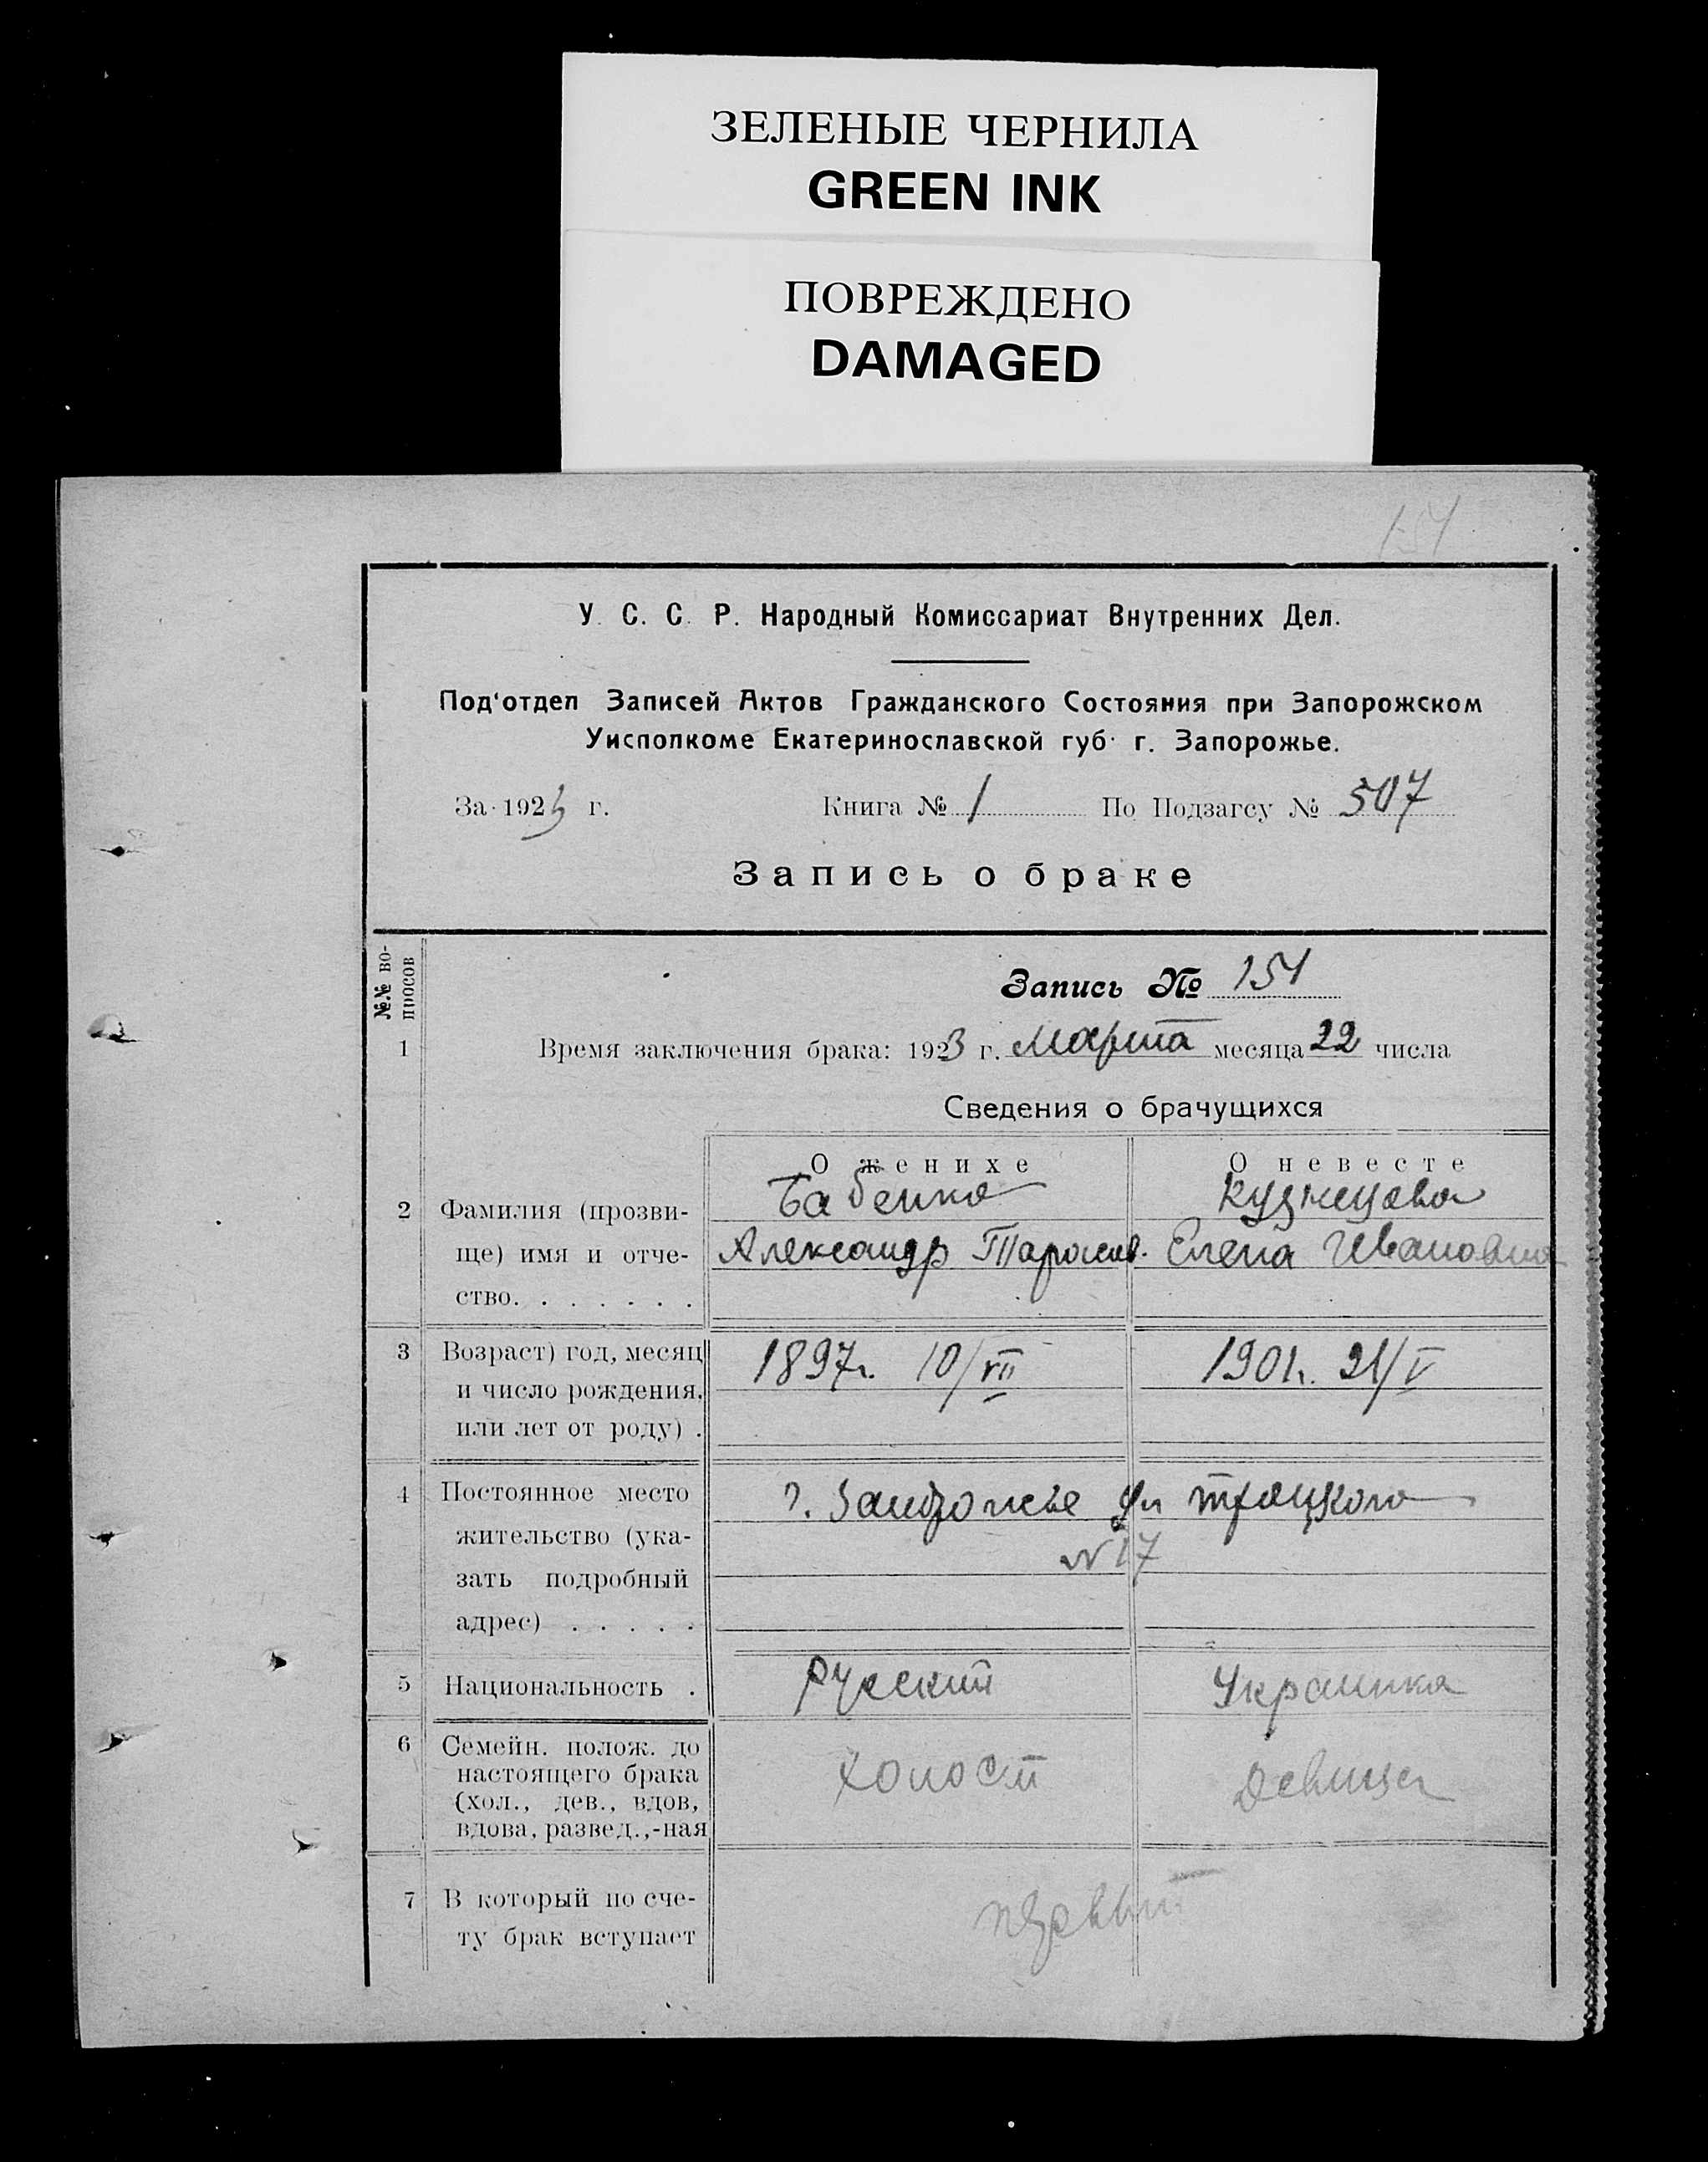 ЗЕЛЕНЫЕ ЧЕРНИЛА
GREEN INK
ПОВРЕЖДЕНО
DAMAGED
151
У. С. С. Р. Народный Комиссариат Внутренних Дел.
Под‘отдел Записей Актов Гражданского Состояния при Запорожском
Уисполкоме Екатеринославской губ. г. Запорожье.
За 1923 г. Книга № 1 По Подзагсу № 507
Запись о браке
№№ во-
просов
Запись № 151
1 Время заключения брака: 1923 г. Марта месяца 22 числа
Сведения о брачущихся
О женихе О невесте
2 Фамилия (прозви- Бабенко Кузнецова
ще) имя и отче- Александр Тарасов. Елена Ивановна
ство. . . . . . .
3 Возраст) год, месяц 1897г. 10/VII 1901г. 21/V
и число рождения,
или лет от роду) .
4 Постоянное место г. Запорожье Ул Троцкого
жительство (ука- № 17
зать подробный
адрес) . . . . .
5 Национальность . Русский Украинка
6 Семейн. полож. до
настоящего брака холост Девица
(хол., дев., вдов,
вдова, развед.,-ная
7 В который по сче- первый
ту брак вступает